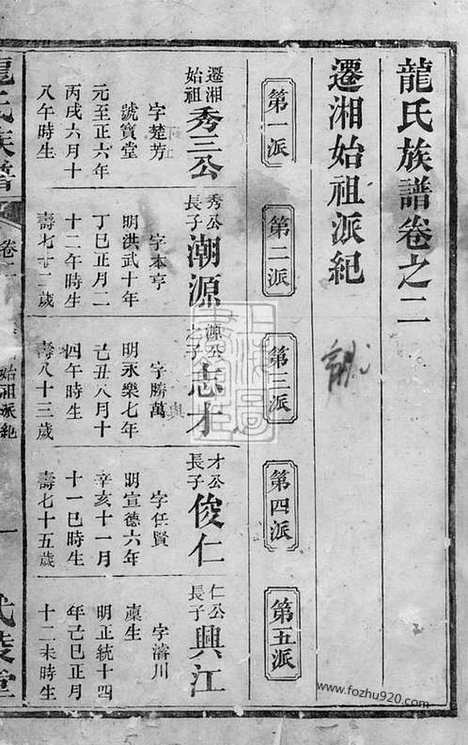 龍氏族譜卷之二
遷湘始祖派紀
第一派
遷湘始祖秀三公
字楚芳
號寶堂
元至正六年
丙戌六月十
八午時生
第二派
秀公長子潮源
字本亨
明洪武十年
丁巳正月二
十二午時生
壽七十二歲
第三派
源公之子志才
字勝萬
明永樂七年
己丑八月十
四午時生
壽八十三歲
第四派
才公長子俊仁
字任賢
明宣德六年
辛亥十一月
十一巳時生
壽七十五歲
第五派
仁公長子興江
字濬川
稟生
明正統十四
年己巳正月
十二未時生
龍氏族譜
卷
始祖派紀
一
武陵堂
www.fozhu920.com